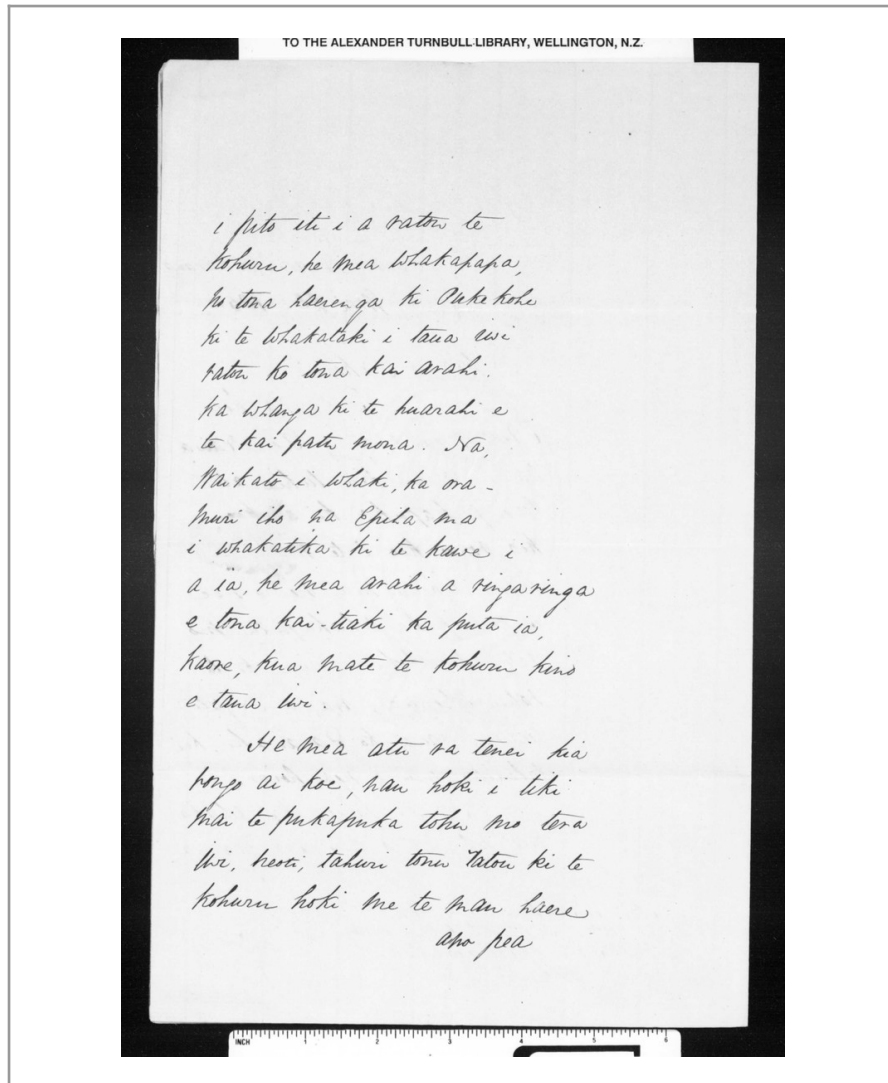 TO THE ALEXANDER TURNBULL LIBRARY, WELLINGTON, N.Z.
i pito iti i a ratou te
kohuru, he mea whakapapa,
no tona haerenga ki Pukekohe
ki te whakataki i taua iwi
ratou ko tona kai arahi.
ka whanga ki te huarahi e
te kai patu mona. Na,
Waikato i whaki, ka ora -
muri iho na Epiha ma
i whakatika ki te kawe i
a ia, he mea arahi a ringaringa
e tona kai-tiaki ka puta ia,
kaore, kua mate te kohuru kino
e taua iwi.
He mea atu ra tenei kia
rongo ai koe, nau hoki i tiki
mai te pukapuka tohu mo tera
Iwi, heoti, tahuri tonu Ratou ki te
kohuru hoki me te mau haere
apo pea
INCH 1 2 3 4 5 6